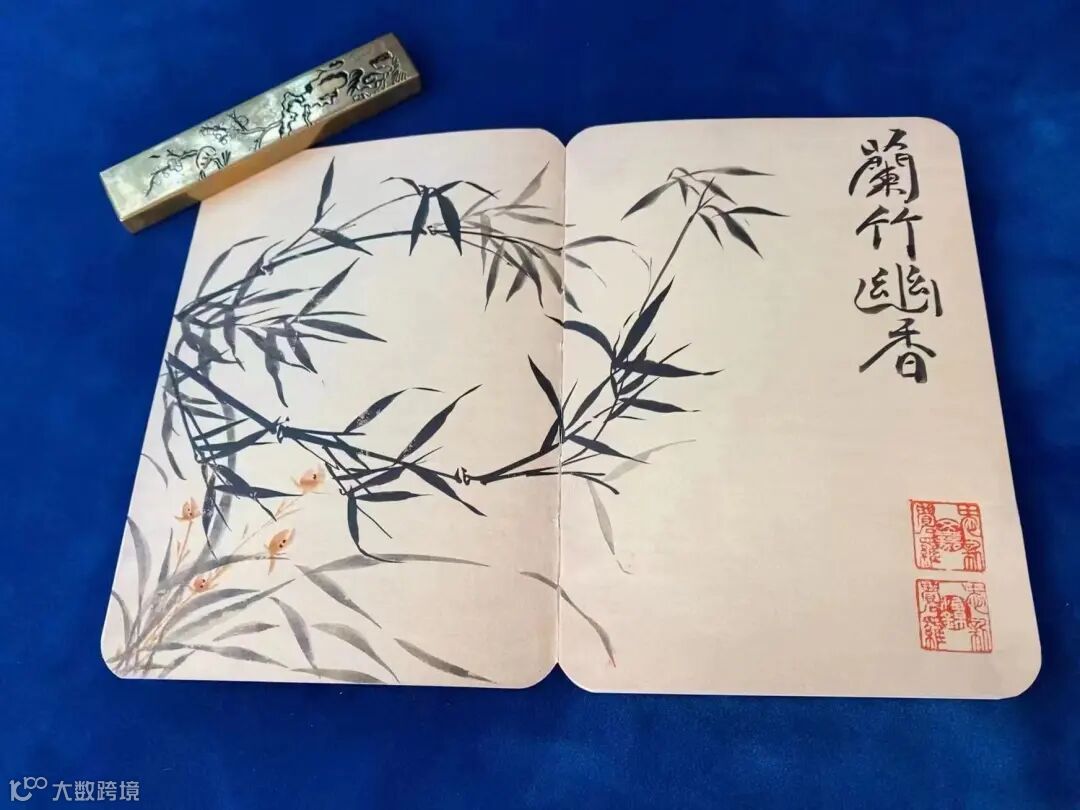 蘭竹幽香
大数跨境